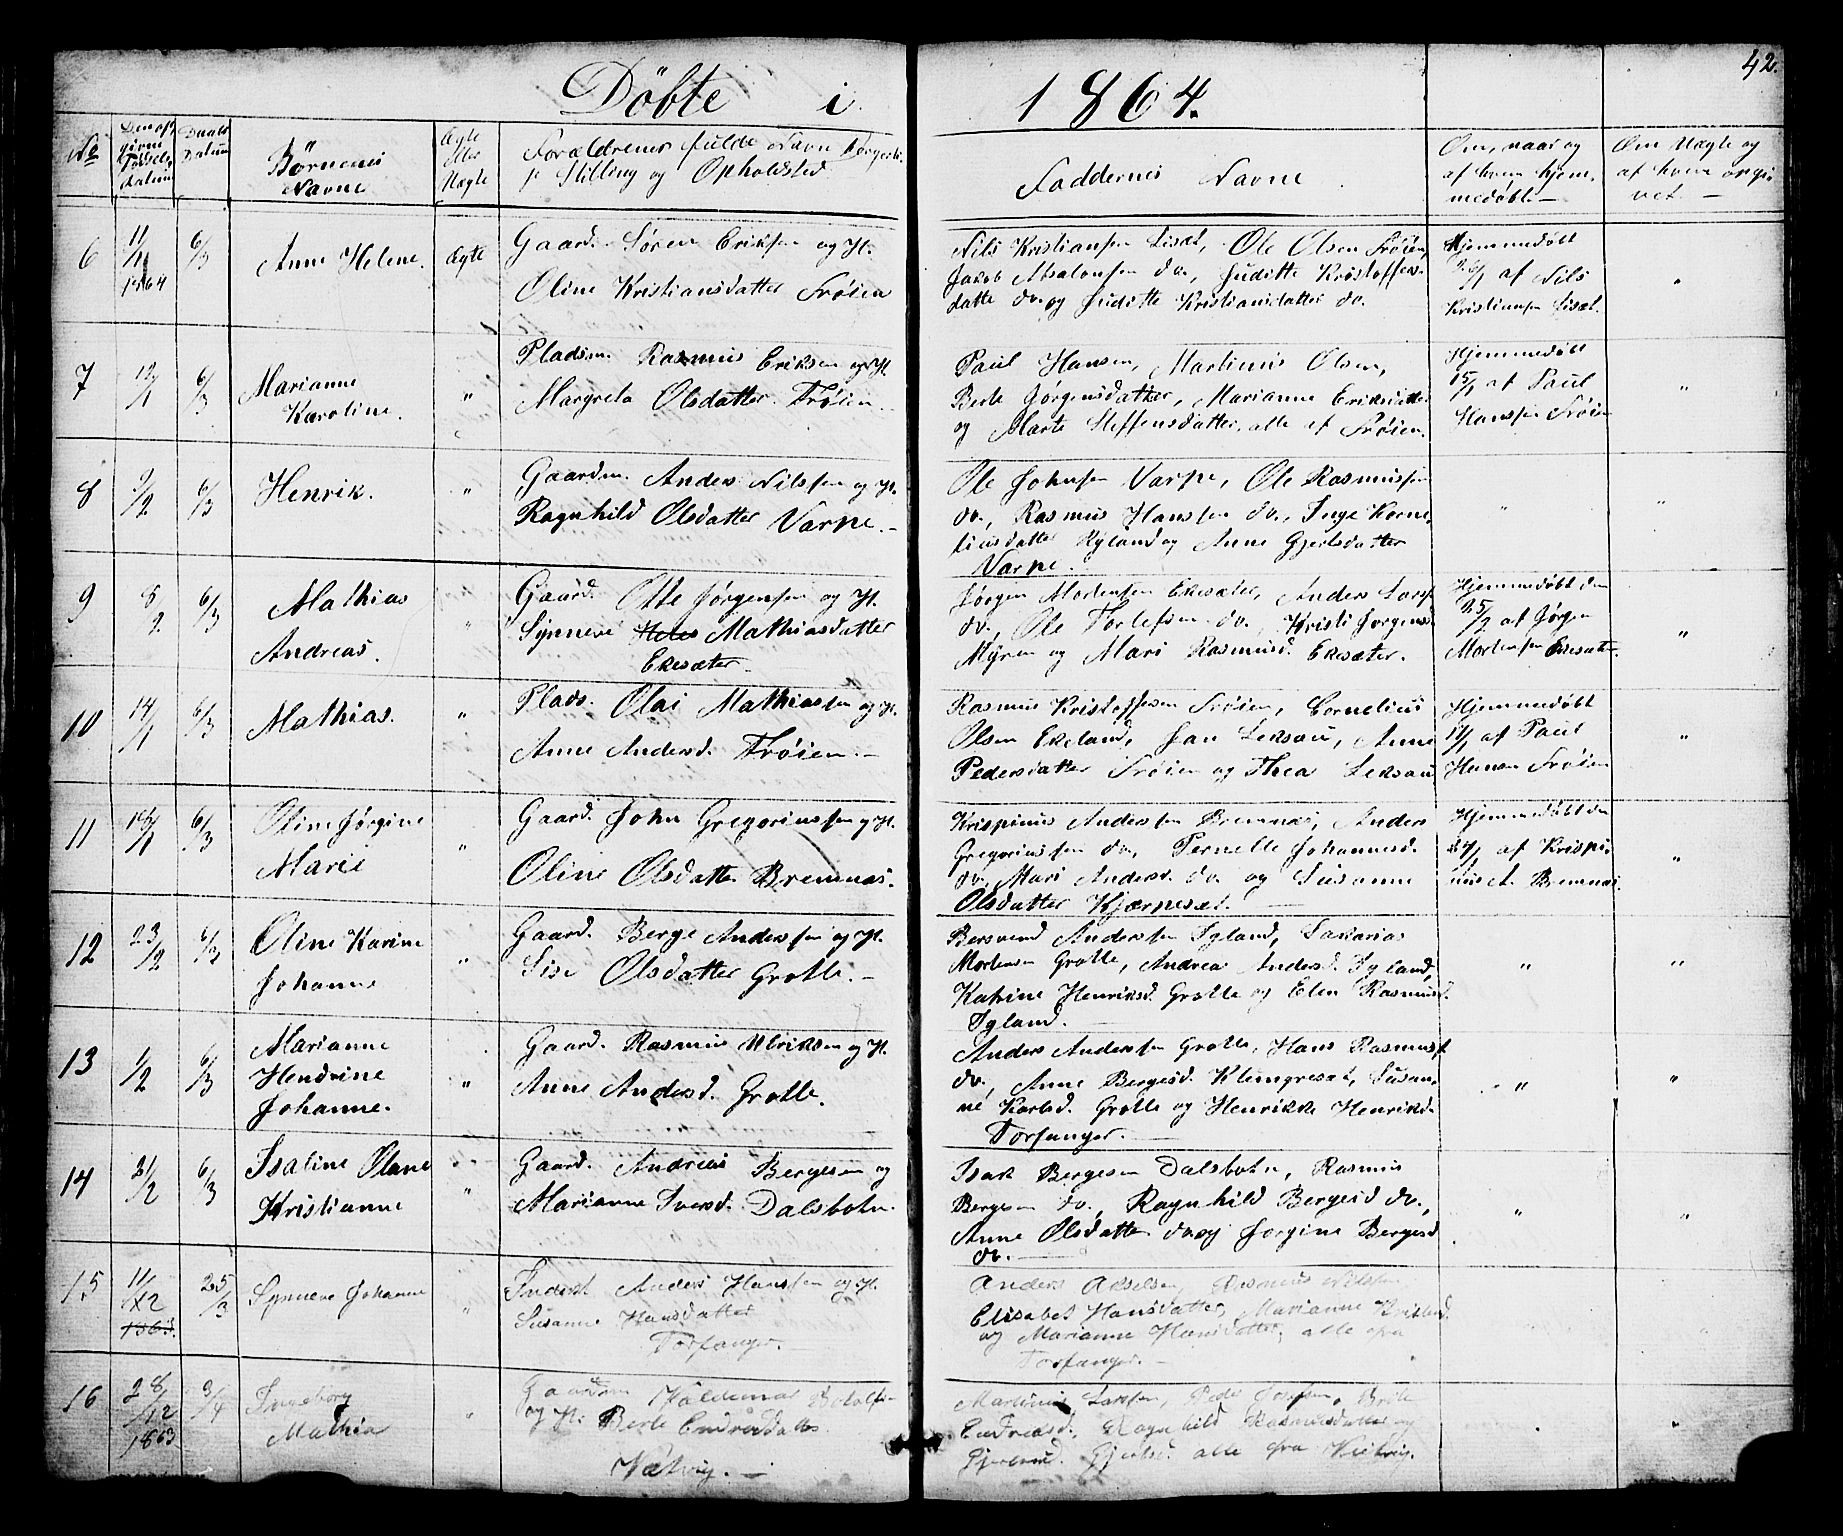 42.
Döbte i 1864.
No
Børnenes Navne
Ægte eller Uægte
Forældrenes fulde Navn, Borgerl.
Stilling og Opholdsted
Faddernes Navne
Om, naar og af hvem hjemmedøbt.—
6
11/1 1864
6/3
Anne Helene.
Ægte
Gaard. Søren Eriksen og H.
Oline Kristiansdatter Frøien
Nils Kristiansen Liset, Ole Olsen Frøien,
Jakob Absalonsen do., Juditte Kristoffers-
datte do. og Juditte Kristiansdatter do.
Hjemmedöbt
26/1 af Nils
Kristiansen Liset.
"
7
12/1
6/3
Marianne
Karoline.
"
Pladsm. Rasmus Eriksen og H.
Margreta Olsdatter. Frøien.
Paul Hansen, Martinus Olsen,
Berte Jørgensdatter, Marianne Eriksdatter
og Marte Steffensdatter, alle af Frøien.
Hjemmedöbt
15/1 af Paul
Hansen Frøien
"
8
6/3
Henrik.
"
Gaardm. Anders Nilssen og H.
Ragnhild Olsdatter Varpe.—
Ole Johnsen Varpe, Ole Rasmussen
do., Rasmus Hanssen do., Inge Korne-
liusdatter Hyland og Anne Gjertsdatter
Varpe.
"
"
9
8/2
6/3
Mathias
Andreas.
"
Gaard. Otte Jørgensen og H.
Synneve Mathiasdatter
Ekesæter
Jørgen Mortensen Ekesæter, Anders Larss.
do., Ole Torlefsen do., Kristi Jørgensd.
Myren og Mari Rasmusd. Ekesæter.
Hjemmedöbt den
25/2 af Jørgen
Mortensen Ekesæt.
"
10
14/1
6/3
Mathias.
"
Plads. Olai Mathiassen og H.
Anne Andersd. Frøien.—
Rasmus Kristoffersen Frøien, Cornelius
Olsen Ekeland, Jan Leksau, Anne
Pedersdatter Frøien og Thea Leksau
Hjemmedöbt
af Paul
Hansen Frøien
"
11
6/3
Oline Jørgine
Marie
"
Gaard. John Gregoriussen og H.
Oline Olsdatter Bremnes.
Krispinus Anderssen Bremnes, Anders
Gregoriussen do., Pernelle Johannesd.
do. Mari Andersd. do. og Susanne
Olsdatter Kjærnesæt.
Hjemmedöbt den
24/1 af Krispi-
nus A. Bremnes.
"
12
23/2
6/3
Oline Karine
Johanne
"
Gaard. Berge Anderssen og H.
Sise Olsdatter Grotle.—
Bersvend Anderssen Igland, Sakarias
Mortensen Grotle, Andrea Andersd. Igland,
Katrine Henriksd. Grotle og Elen Rasmusd.
Igland.
"
"
13
1/2
6/3
Marianne
Hendrine
Johanne.
"
Gaard. Rasmus Ulriksen og H.
Anne Andersd. Grotle.
Anders Anderssen Grotle, Hans Rasmuss.
do., Anne Bergesd. Klungresæt, Susan-
ne Karlsd. Grotle og Henrikke Henriksd.
Torfanger.
"
"
14
6/3
Isaline Olane
Kristianne
"
Gaard. Andreas Bergesen og
Marianne Iversd. Dalsbotn.
Isak Bergesen Dalsbotn, Rasmus
Bergesen do., Ragnhild Bergesd. do.,
Anne Olsdatter do. og Jørgine Bergesd.
do.
"
"
15
11/12
1863.
25/3
Synneve Johanne
"
Inderst Anders Hanssen og H.
Susanne Hansdatter
Torfanger.
Anders Akselsen, Rasmus Nilssen
Elisabet Hansdatter, Marianne
og Marianne Hansdatter, alle fra
Torfanger.
16
28/12
1863
3/4
Ingeborg
Mathia
"
Gaardm. Valdemar
og H. Berte Endresdatter
Martinus Larssen, Peder
Endresd., Ragnhild Rasmusdatter og
Gjertsd. alle fra
"